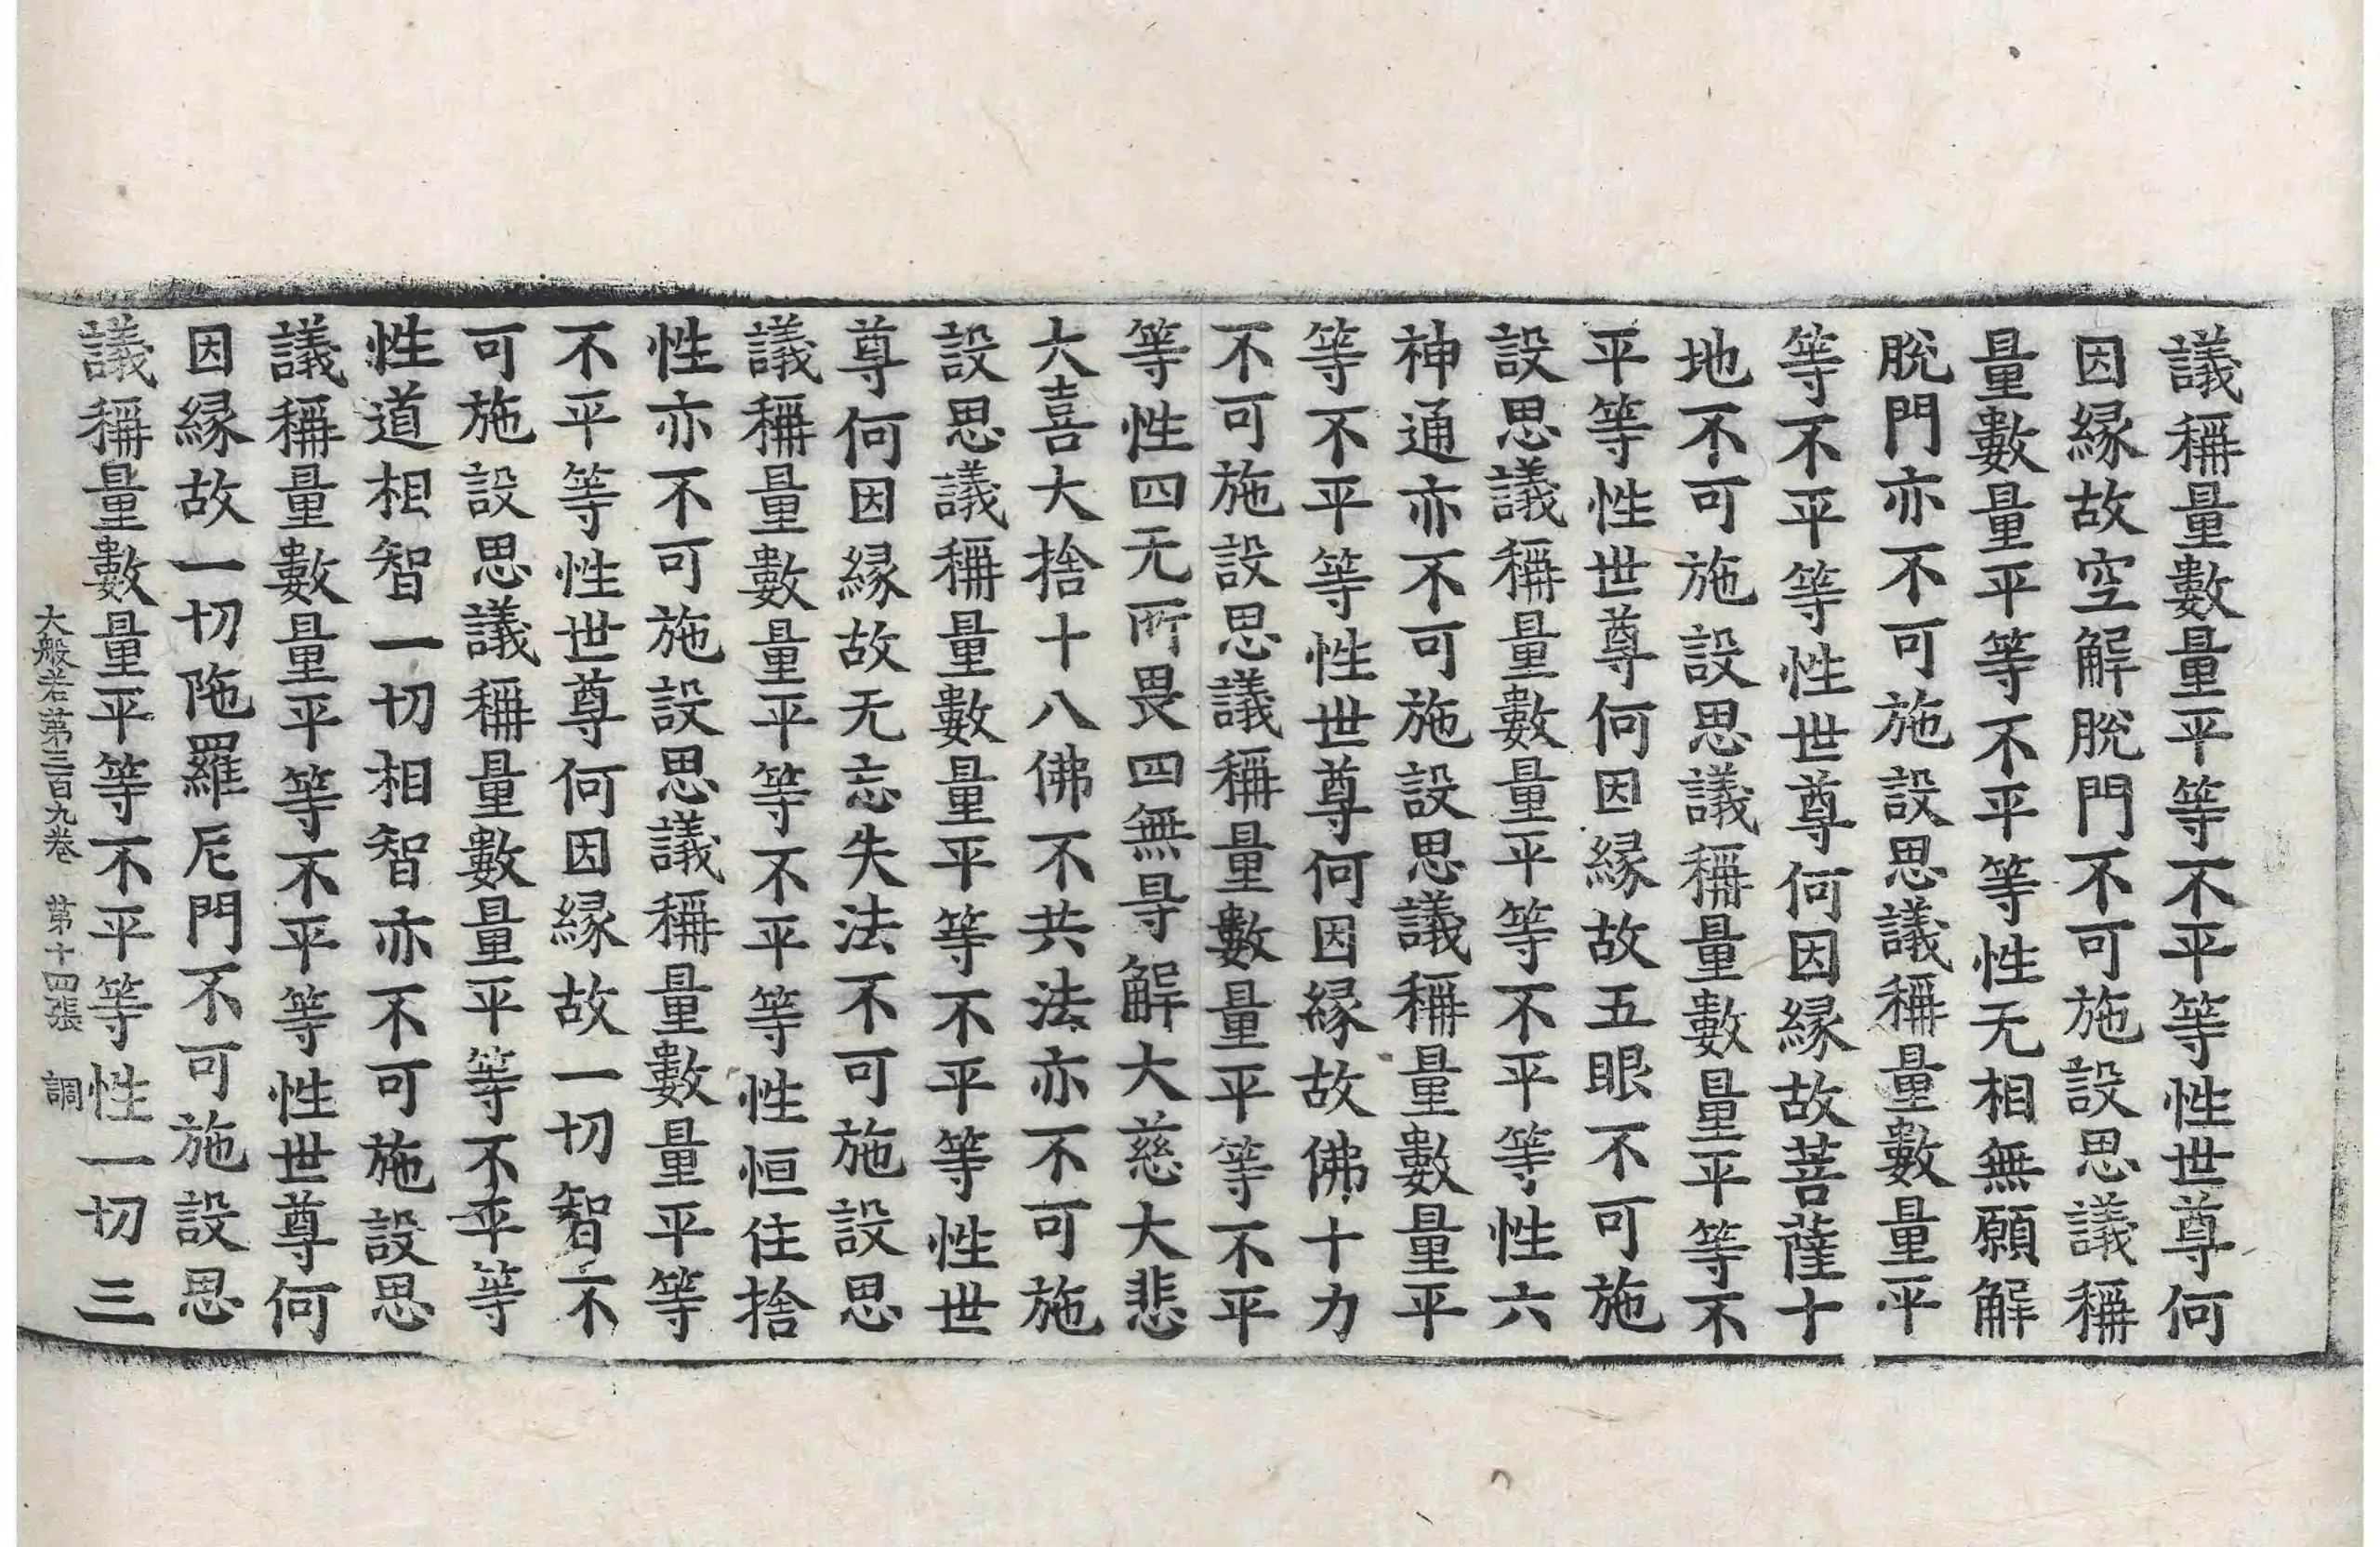 議稱量數量平等不平等性世尊何
因縁故空解脫門不可施設思議稱
量數量平等不平等性无相無願解
脫門亦不可施設思議稱量數量平
等不平等性世尊何因縁故菩薩十
地不可施設思議稱量數量平等不
平等性世尊何因縁故五眼不可施
設思議稱量數量平等不平等性六
神通亦不可施設思議稱量數量平
等不平等性世尊何因縁故佛十力
不可施設思議稱量數量平等不平
等性四无所畏四無㝵解大慈大悲
大喜大捨十八佛不共法亦不可施
設思議稱量數量平等不平等性世
尊何因縁故无忘失法不可施設思
議稱量數量平等不平等性恒住捨
性亦不可施設思議稱量數量平等
不平等性世尊何因縁故一切智不
可施設思議稱量數量平等不平等
性道相智一切相智亦不可施設思
議稱量數量平等不平等性世尊何
因縁故一切陁羅尼門不可施設思
議稱量數量平等不平等性一切三
大般若第三百九卷 第十四張 調